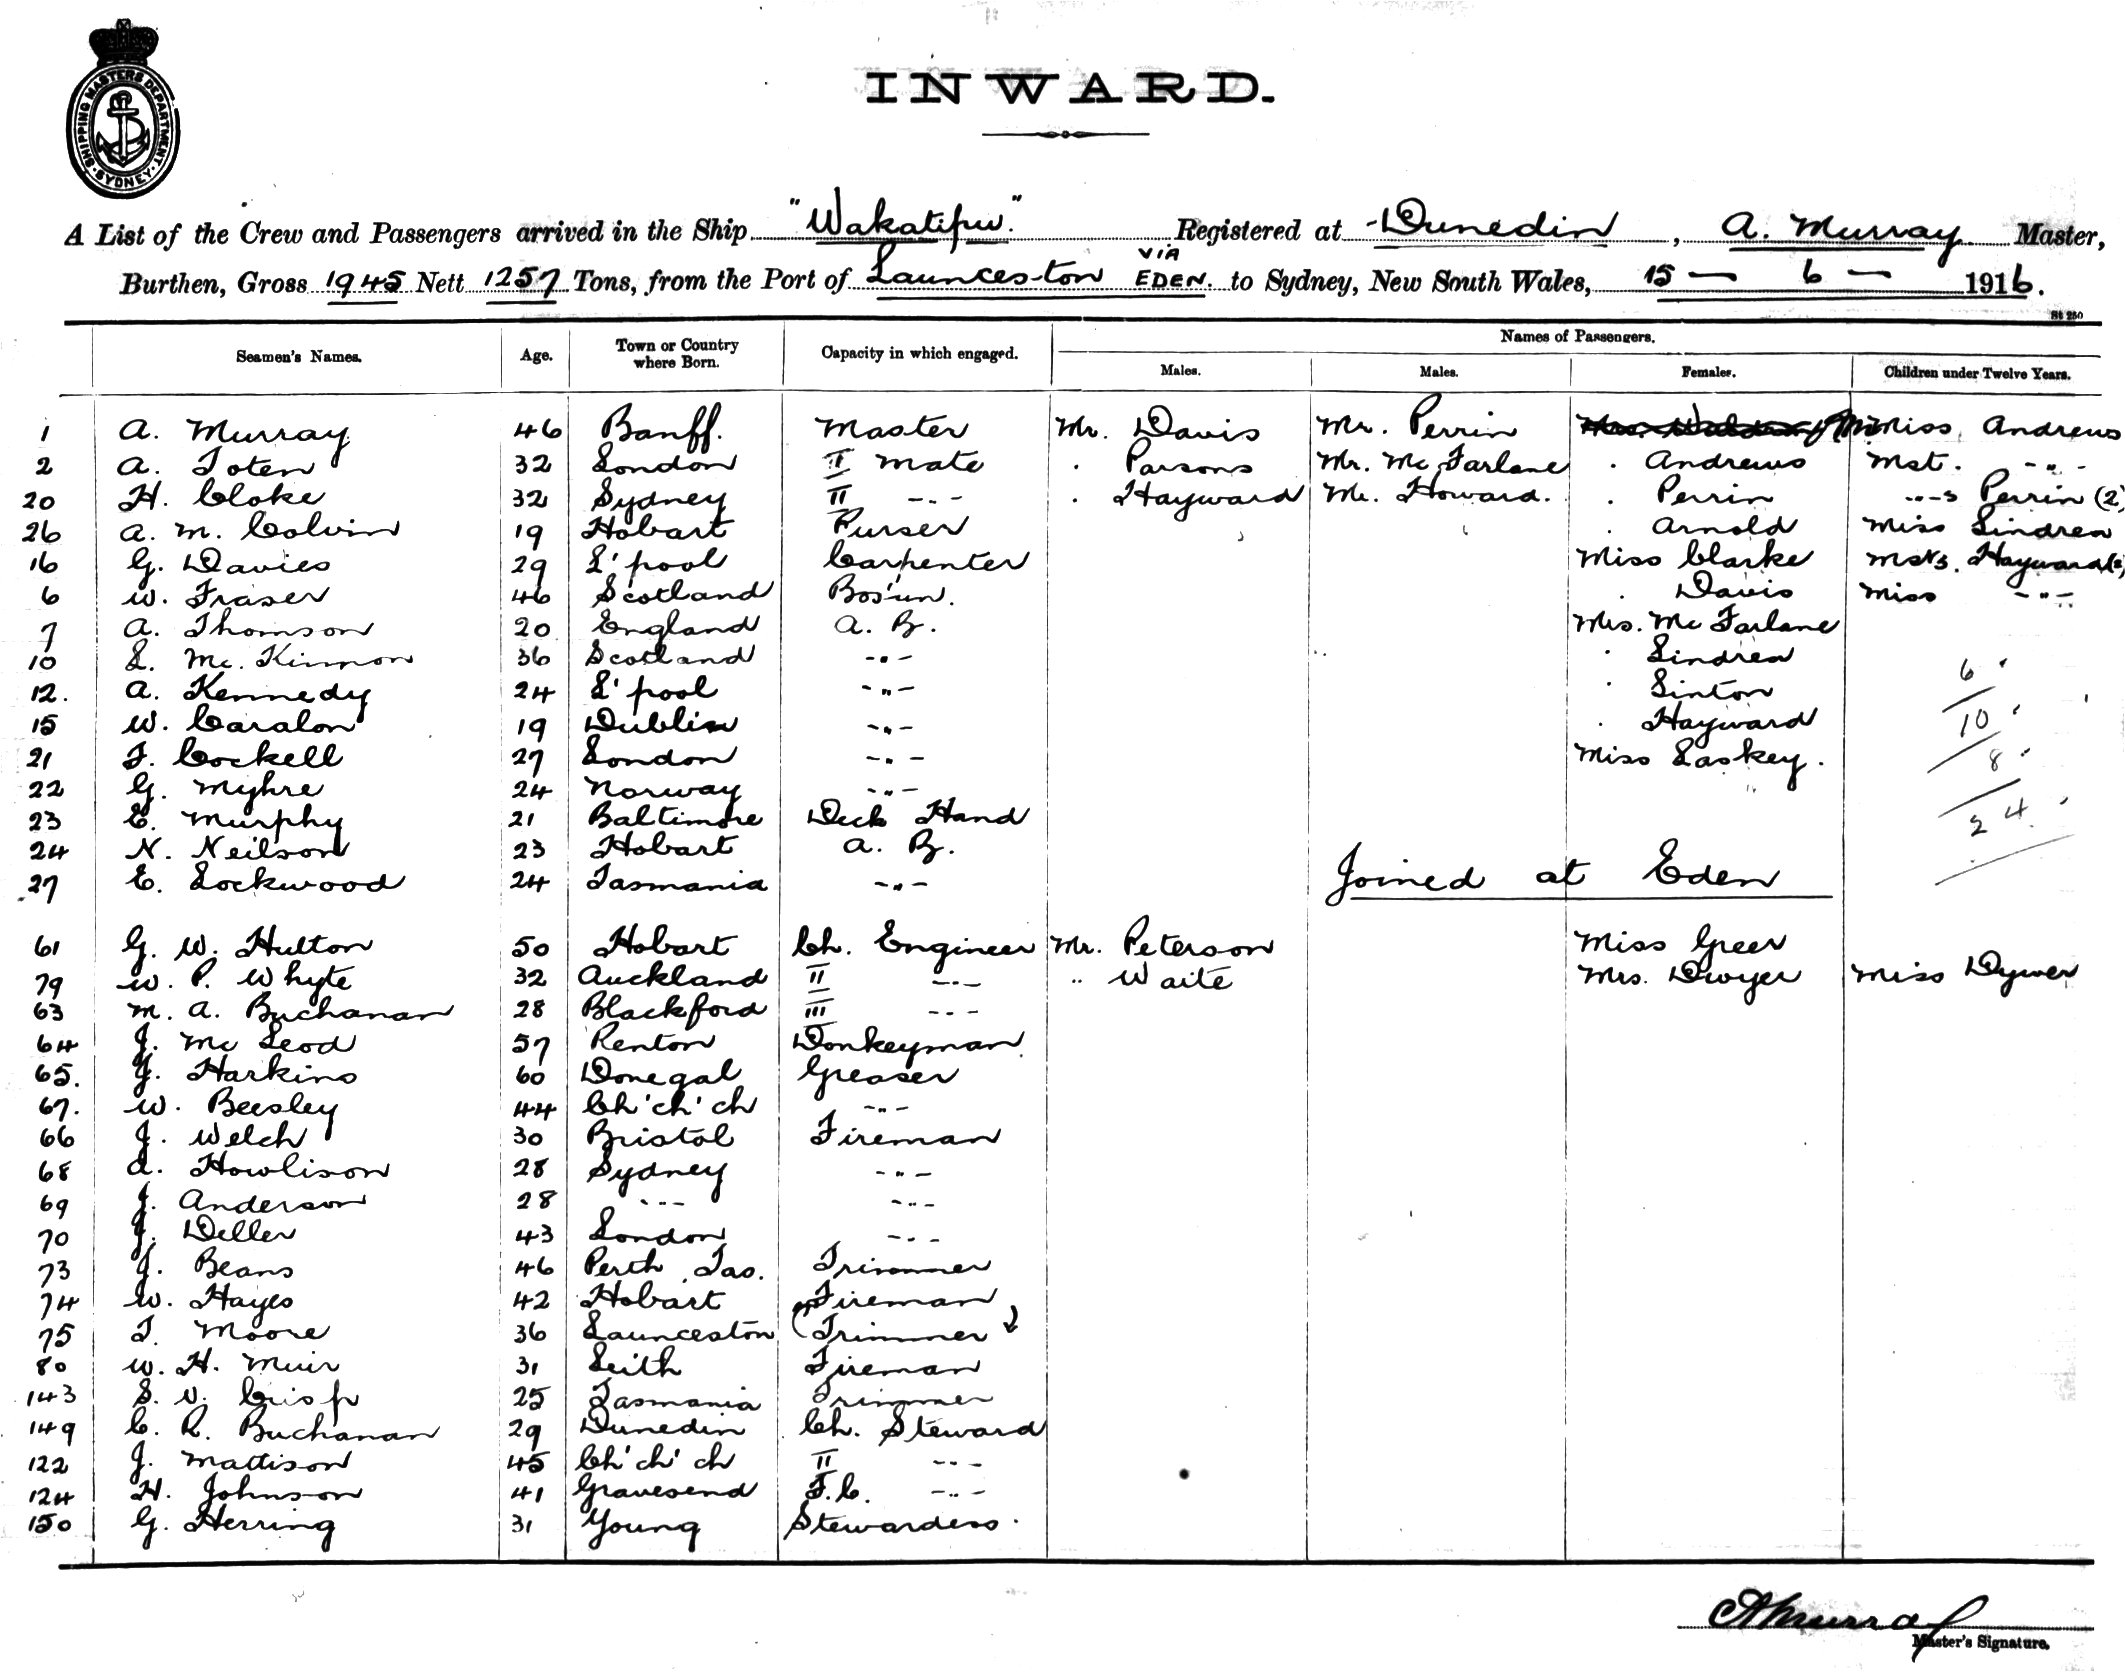 SHIPPING MASTERS DEPARTMENT. SYDNEY.
INWARD.
A List of the Crew and Passengers arrived in the Ship "Wakatipu." Registered at Dunedin, A. Murray Master,
VIA
Burthen, Gross 1945 Nett 1257 Tons, from the Port of Launceston EDEN. to Sydney, New South Wales, 15 — 6 — 1916.
St 250
Names of Passengers.
Seamen's Names. Age. Town or Country where Born. Capacity in which engaged. Males. Males. Females. Children under Twelve Years.
1 A. Murray 46 Banff. Master Mr. Davis Mr. Perrin Miss Andrews
2 A. Toten 32 London II Mate . Parsons Mr. McFarlane . Andrews Mst. -"-
20 H. Cloke 32 Sydney II -"- . Hayward Mr. Howard. . Perrin -"-s Perrin (2)
26 A. M. Colvin 19 Hobart Purser . Arnold Miss Lindrea
16 G. Davies 29 L'pool Carpenter Miss Clarke Msts. Hayward (2)
6 W. Fraser 46 Scotland Bos'un. . Davis Miss -"-
7 A. Thomson 20 England A. B. Mrs. McFarlane
10 L. Mc.Kinnon 36 Scotland -"- . Lindrea
12. A. Kennedy 24 L'pool -"- . Sinton
15 W. Caralon 19 Dublin -"- . Hayward
21 F. Cockell 27 London -"- Miss Laskey.
22 G. Myhre 24 Norway -"-
23 E. Murphy 21 Baltimore Deck Hand
24 N. Neilson 23 Hobart A. B.
27 E. Lockwood 24 Tasmania -"-
6
10
8
24
Joined at Eden
61 G. W. Hulton 50 Hobart Ch. Engineer Mr. Peterson Miss Greer
79 W. P. Whyte 32 Auckland II -"- " Waite Mrs. Dwyer Miss Dywer
63 M. A. Buchanan 28 Blackford III -"-
64 J. McLeod 57 Renton Donkeyman
65. J. Harkins 60 Donegal Greaser
67. W. Beesley 44 Ch'ch'ch -"-
66 J. Welch 30 Bristol Fireman
68 A. Howlison 28 Sydney -"-
69 J. Anderson 28 -"- -"-
70 J. Deller 43 London -"-
73 J. Beans 46 Perth Tas. Trimmer
74 W. Hayes 42 Hobart Fireman
75 T. Moore 36 Launceston Trimmer
80 W. H. Muir 31 Leith Fireman
143 S. V. Crisp 25 Tasmania Trimmer
149 C. R. Buchanan 29 Dunedin Ch. Steward
122 J. Mattison 45 Ch'ch'ch II -"-
124 H. Johnson 41 Gravesend F.C. -"-
150 G. Herring 31 Young Stewardess.
A Murray
Master's Signature.